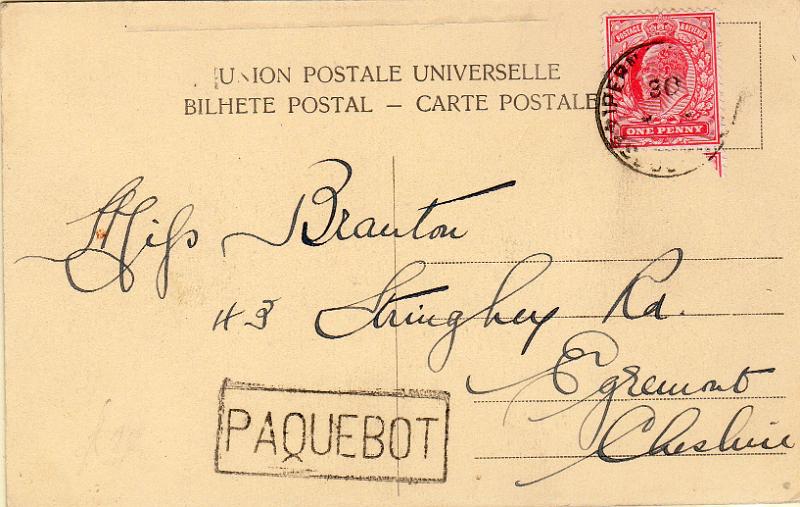 UNION POSTALE UNIVERSELLE
BILHETE POSTAL — CARTE POSTALE
POSTAGE & REVENUE
30
ONE PENNY
Miss Branton
43 Stringhey Rd.
Egremont
Cheshire
PAQUEBOT